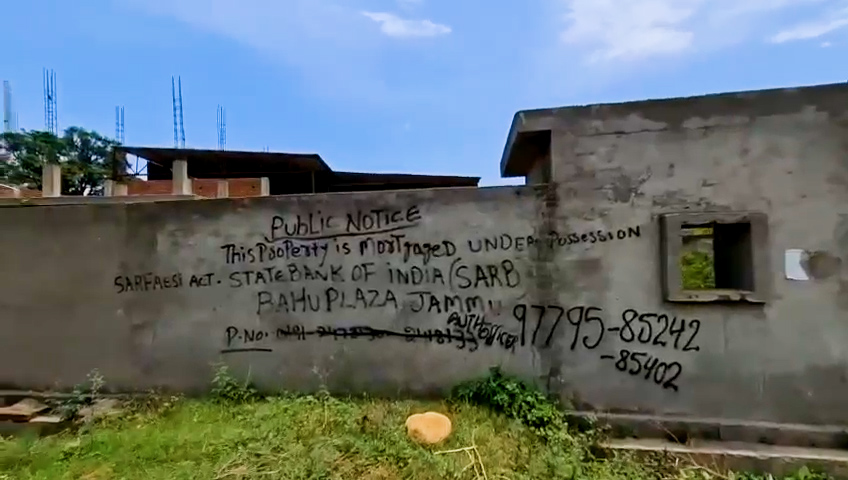 PUBLIC NOTICE
This PROPERTY is MORTGAGED UNDER POSSESSION
SARFAESI ACT. STATE BANK OF INDIA (SARB
BAHU PLAZA JAMMU
P.NO. AUTH OFFICER 97795-85242
-85402